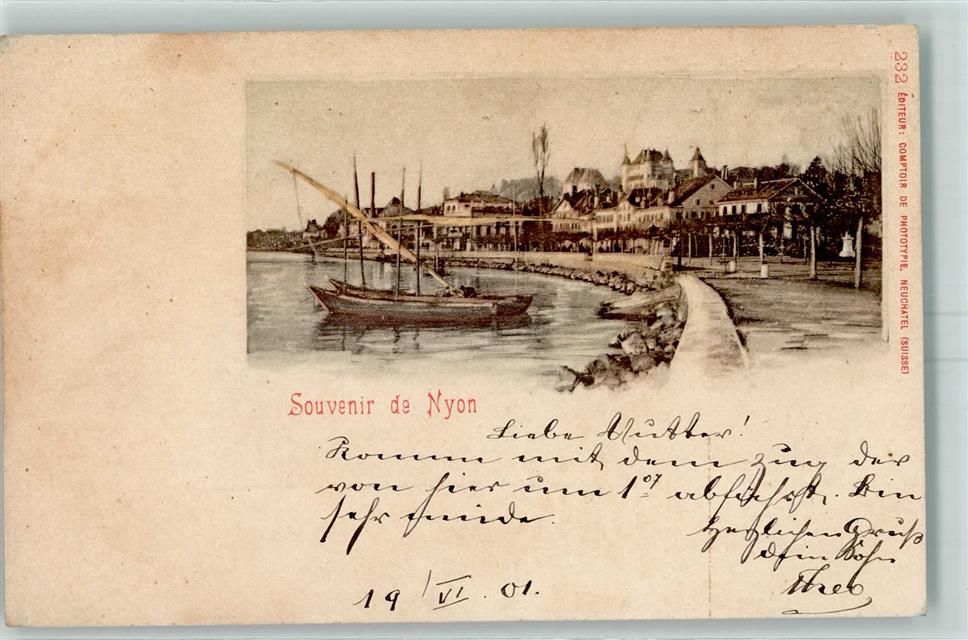 232 ÉDITEUR: COMPTOIR DE PHOTOTYPIE, NEUCHATEL (SUISSE)
Souvenir de Nyon
Liebe Mutter!
Komm mit dem Zug der
von hier um 1 07 abfährt. Bin
sehr müde.
Herzlichen Gruß
dein Sohn
Theo
19/VI. 01.